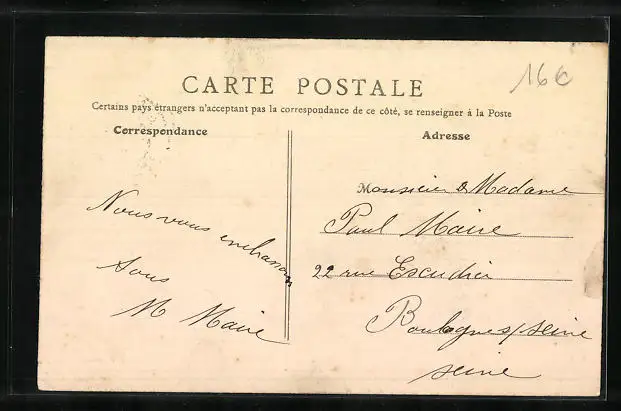 16€
CARTE POSTALE
Certains pays étrangers n'acceptant pas la correspondance de ce côté, se renseigner à la Poste
Correspondance
Adresse
Nous vous embrassons
tous
M Maire
Monsieur & Madame
Paul Maire
22 rue Escudier
Boulogne s/ seine
seine